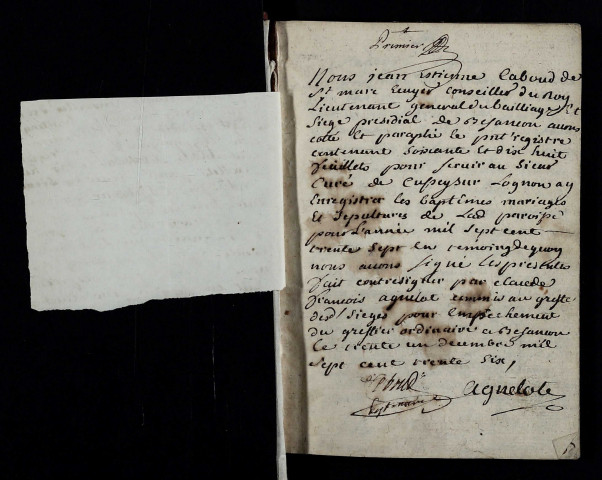 Premier
Nous jean Estienne Caboud de
St marc Ecuyer Conseiller du Roy
Lieutenant general du bailliage Et
Siege presidial de Besancon auons
cotté Et paraphé le pnt registre
contenant Soixante Et dix huit
feuillets pour seruir au Sieur
Curé de Cussey sur Lognon a y
Enregistrer les baptêmes mariages
Et sepultures de Lad paroisse
pour L'année mil sept cent
trente sept En temoing de quoy
nous auons signé Les presentes
fait contresigner par claude
françois agnelot commis au greffe
desd Sieges pour l'empechement
du greffier ordinaire a Besancon
Le trente un decembre mil
sept cent trente six,
agnelot